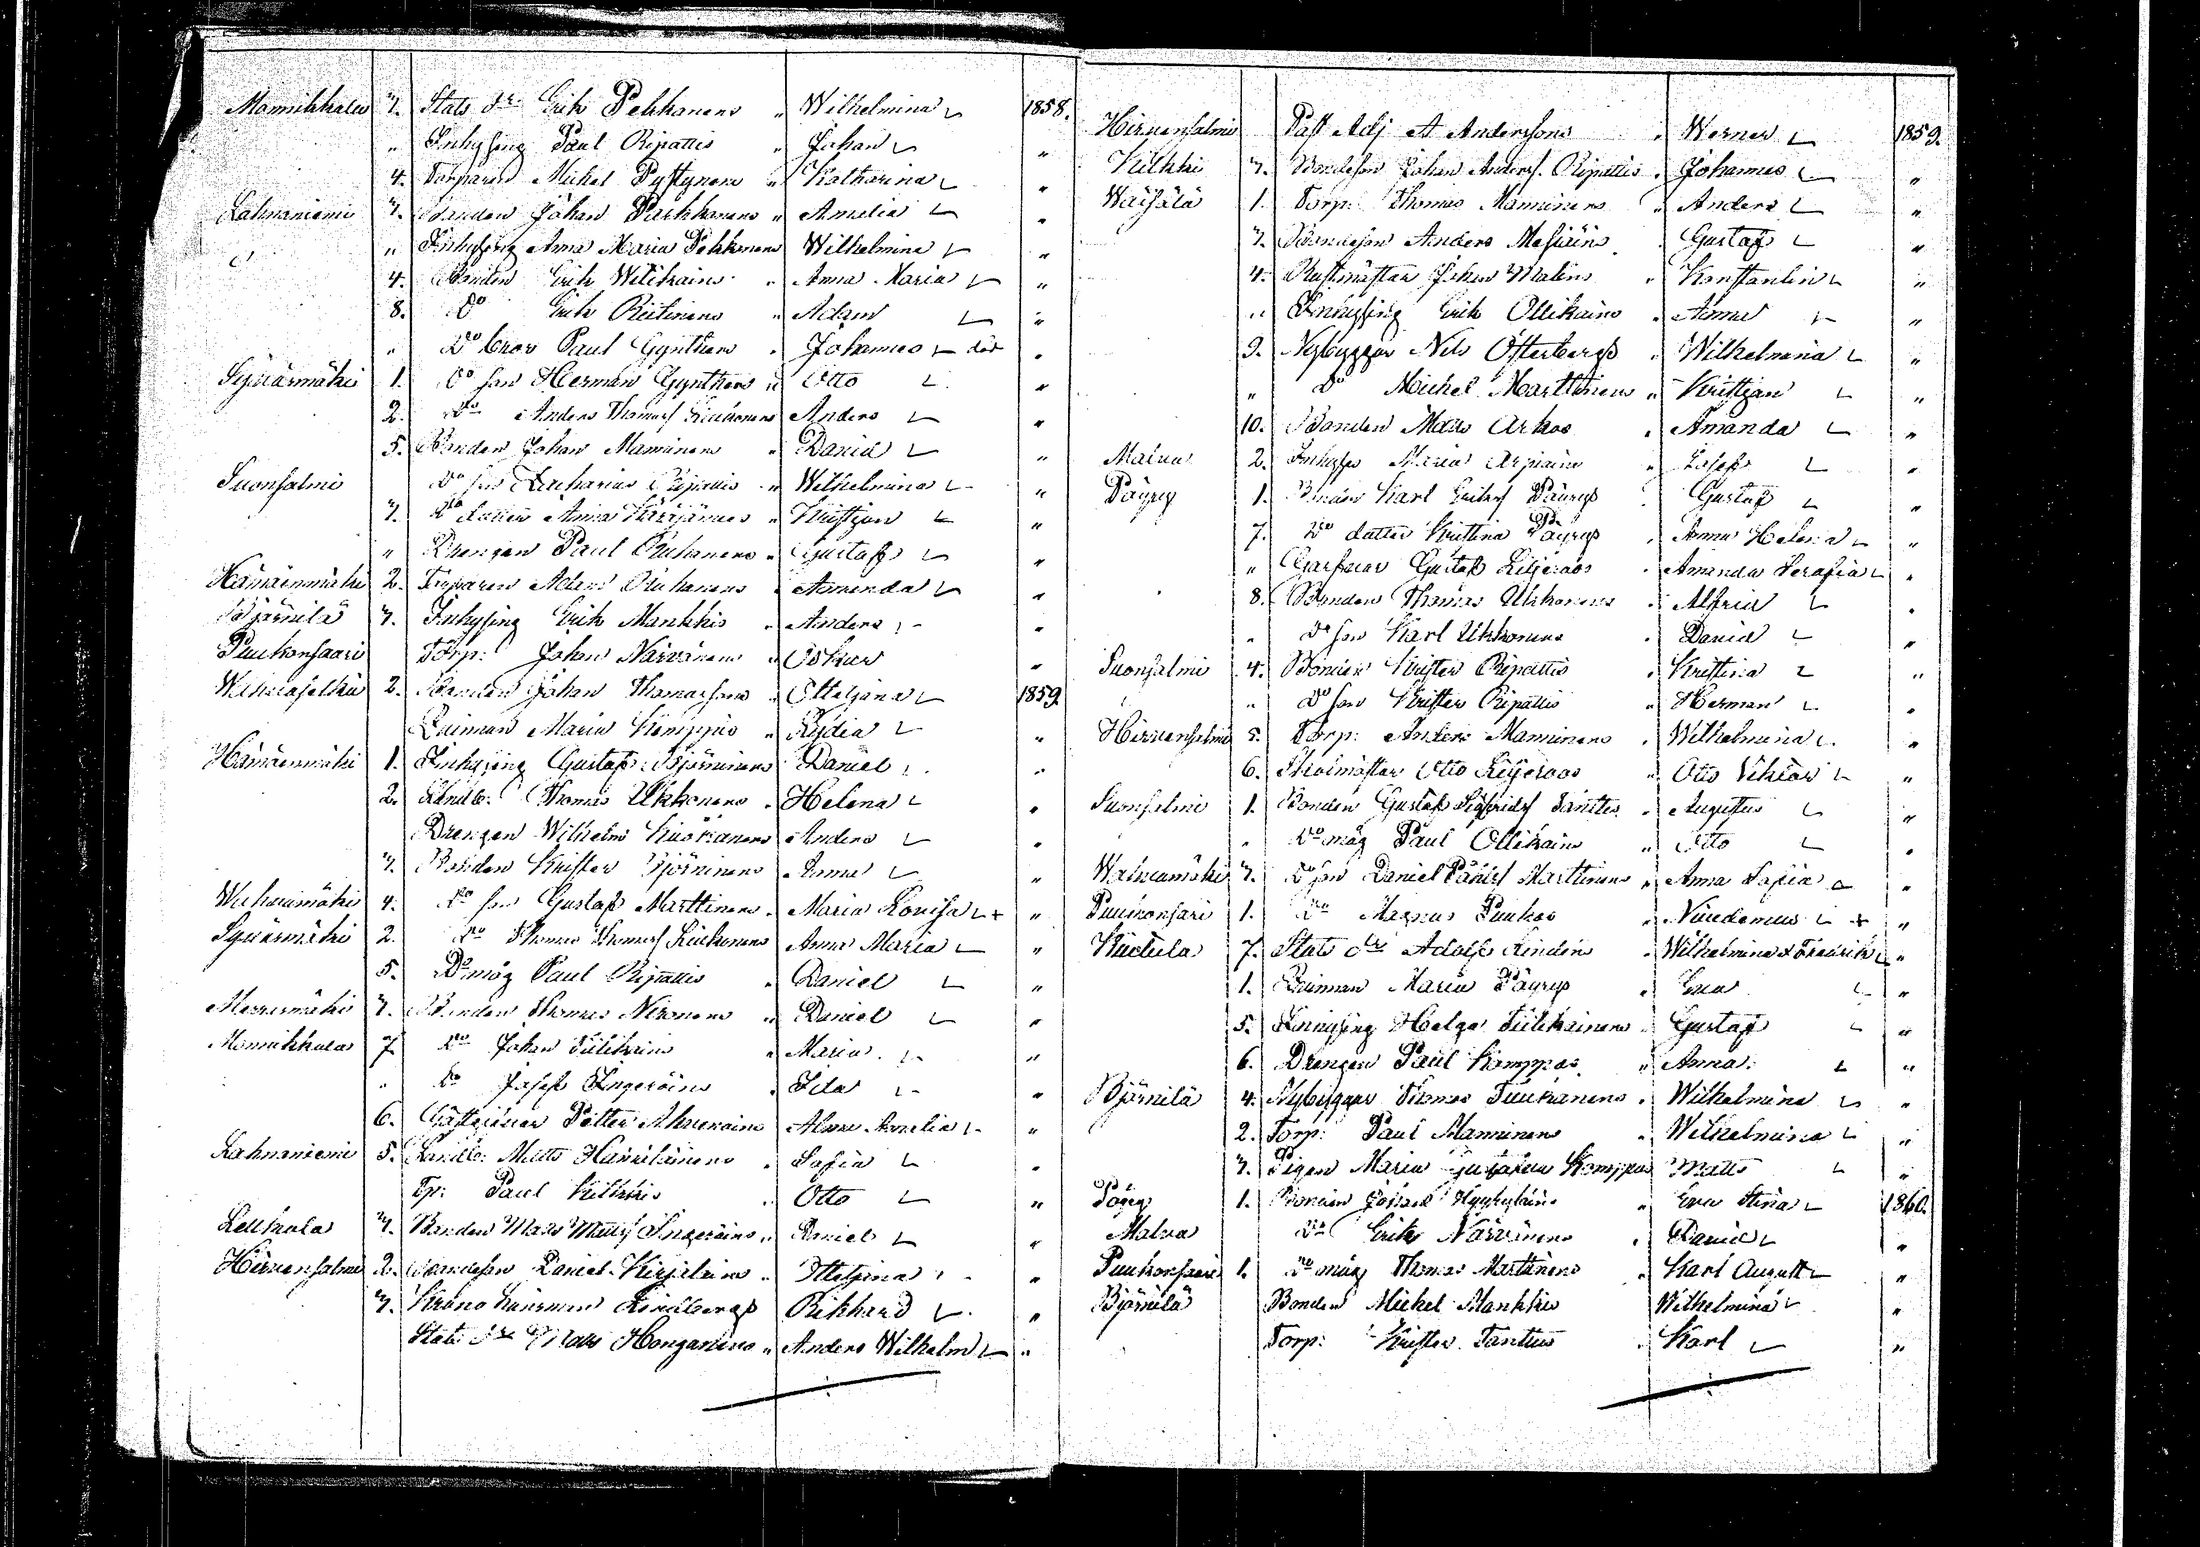 Monnikkala 3. Stats dr. Erik Pekkanens " Wilhelmina 1858.
" Inhysing Paul Ripattis " Johan "
4. Torparen Mickel Pystynens " Katharina "
Lahnaniemi 3. Bonden Johan Parkkonens " Amalia "
" Inhysing Anna Maria Pekkanens Wilhelmina "
4. Bonden Erik Wilikains " Anna Maria "
8. Do Erik Reitinens " Adam "
" Do bror Paul Gynthers " Johannes död "
Syväsmäki 1. Do son Herman Gynthers " Otto "
2. Do Anders Thomass Liukonens Anders "
5. Bonden Johan Manninens " David "
Suonsalmi Do son Zacharias Ripattis " Wilhelmina "
3. Do dotter Anna " Kristjan "
" Drengen Paul Liukonens " Gustaf "
Hämäenmäki 2. Torparen Adam Liukonens " Amanda "
Björnilä 3. Inhysing Erik Mankkis " Anders "
Puukonsaari Torp: Johan Närvänens " Oskar "
2. Bonden Johan Thomassons " Ottiljana 1859.
Maria Kamppis " Lydia "
Hämäenmäki 1. Inhysing Gustaf Björninens Daniel "
2. Thomas Ukkonens " Helena "
Drengen Wilhelm Anders "
3. Bonden Krister Björninens Anna "
4. Do son Gustaf Marttinens " Maria Lovisa + "
Syväsmäki 2. Do Thomas Thomass Liukonens Anna Maria "
5. Do måg Paul Ripattis " Daniel "
3. Bonden Thomas Nironens " Daniel "
Monnikkala 7. Do Johan Tülikains " Maria "
" Do Josef Ingeröins " Ida "
6. Petter Ahvenains Alma Amalia "
Lahnaniemi 5. Matts Hämäläinens " Sofia "
Tp: Paul Kilkkis " Otto "
Lellkola 3. Bonden Mats Matss Ingeröins " Daniel "
Hirvensalmi 2. Bondeson Daniel Kirjalains " Ottiljana "
3. Krono Länsman Lindbergs Rikhard "
Stats dr. Mats Hongarens " Anders Wilhelm "
Hirvensalmi Past Adj A Anderssons " Werner 1859.
Kilkki 3. Bondeson Johan Anderss. Ripattis " Johannes "
Waisälä 1. Torp: Thomas Manninens " Anders "
3. Bondeson Anders Mesiäins " Gustaf "
4. Rustmästar Johan Malins " Konstantin "
" Inhysing Erik Ollikains " Anna "
9. Nybyggar Nils Österbergs " Wilhelmina "
" Do Mickel Marttinens " Kristjan "
10. Bonden Mats Arkos " Amanda "
Malva 2. Inhyses Maria " Josef "
Päyry 1. Bonden Karl Erikss Päyrys " Gustaf "
7. Do dotter Kristina Päyrys " Anna Helena "
" Garfvar Gustaf Liljeroos " Amanda Serafia "
8. Bonden Thomas Ukkonens " Alfrid "
" Do son Karl Ukkonens " David "
Suonsalmi 4. Bonden Krister Ripattis " Kristina "
" Do son Krister Ripattis " Herman "
Hirvensalmi 5. Torp: Anders Manninens " Wilhelmina "
6. Skolmästar Otto Liljeroos " Otto Viktor "
Suonsalmi 1. Bonden Gustaf Sigfridss Tanttu " Augustus "
" Do måg Paul Ollikains " Otto "
3. Do son Daniel Daniels Marttinens " Anna Sofia "
Puukonsari 1. Do Magnus Puukos " Nicodemus + "
7. Stats dr. Adolf Lindéns " Wilhelmina & Fredrik "
1. Maria Päyrys " Eva "
5. Inhysing Helga Tülikainens " Gustaf "
6. Drengen Paul Kamppas " Anna "
Björnilä 4. Nybyggar Thomas Tiukanens " Wilhelmina "
2. Torp: Paul Manninens " Wilhelmina "
3. Pigan Maria Gustafva Kamppas Matts "
Päyry 1. Bonden Johan " Eva Stina 1860.
Malva Do Erik Närvänens " Daniel "
Puukonsaari 1. Do måg Thomas Marttinens " Karl August "
Björnilä Bonden Mickel Mankkis Wilhelmina "
Torp: Krister Tanttus " Karl "